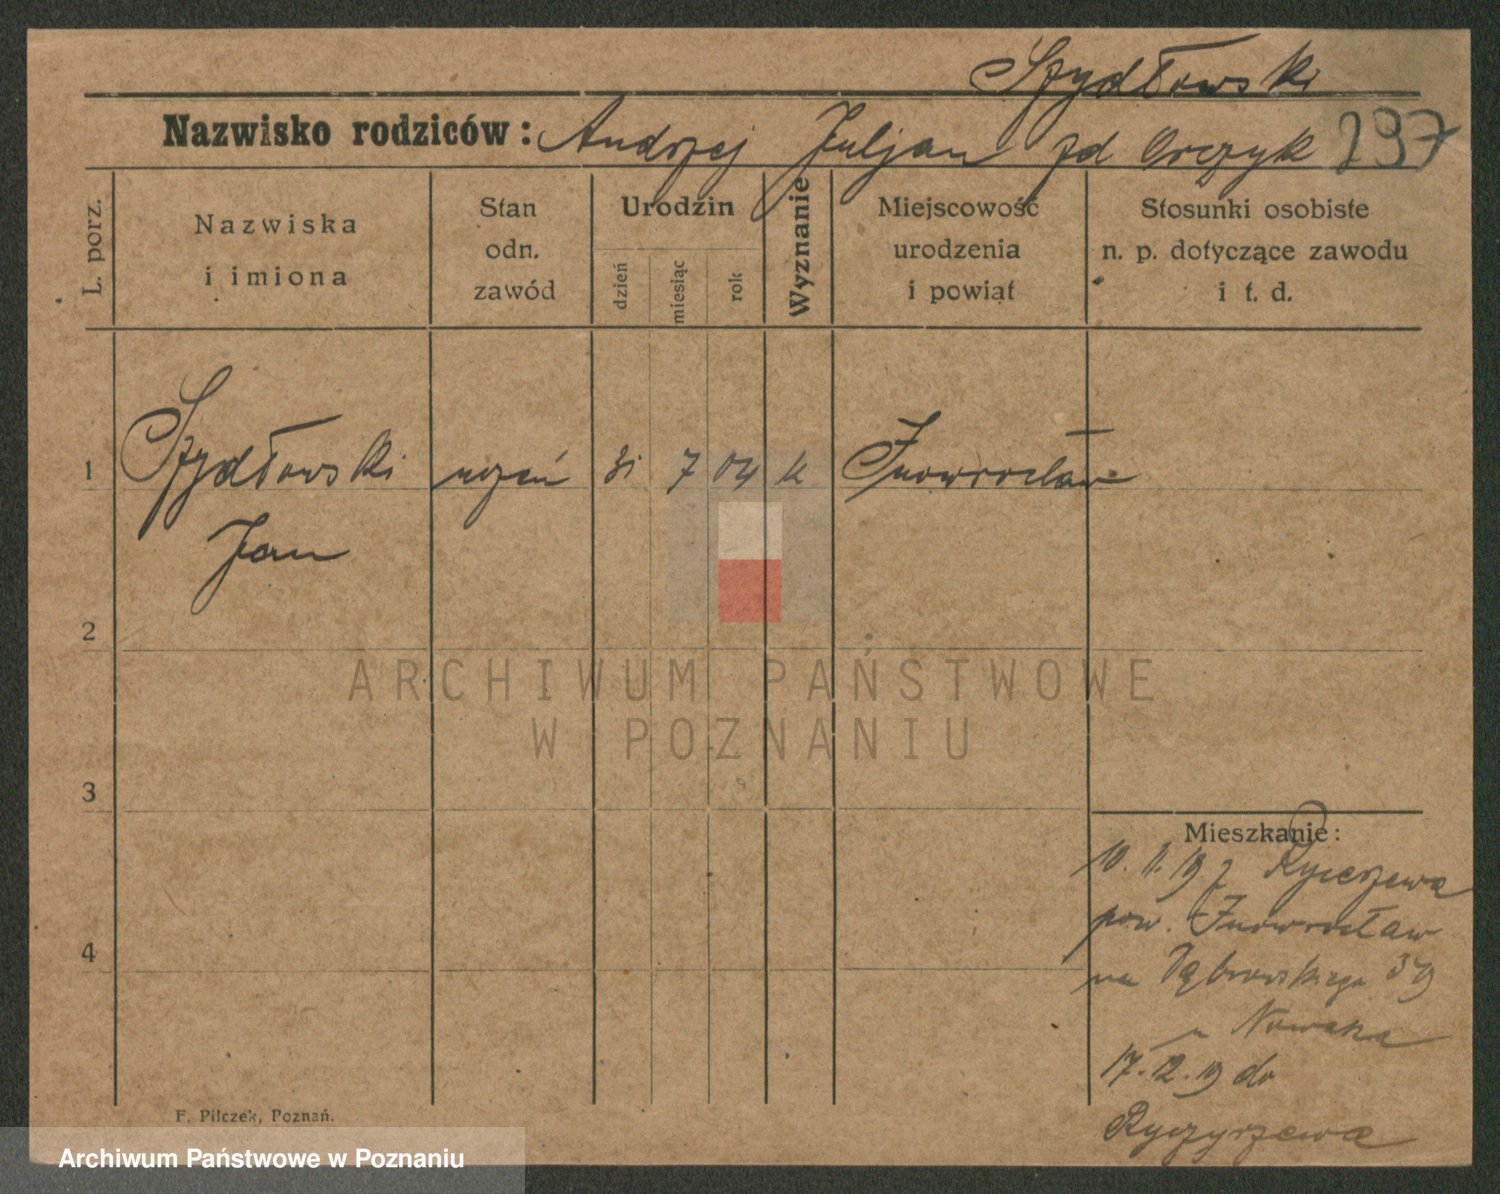 Szydłowski
Nazwisko rodziców: Andrzej Juljan zd Orczyk 297
L. porz.
Nazwiska
i imiona
Stan
odn.
zawód
Urodzin
dzień
miesiąc
rok
Wyznanie
Miejscowość
urodzenia
i powiat
Stosunki osobiste
n. p. dotyczące zawodu
i t. d.
1 Szydłowski uczeń 31 7 04 k Inowrocław
Jan
2
3
4
Mieszkanie:
10. 11. 19 z
pow. Inowrocław
na Dąbrowskiego 39
u Nowaka
17.12.19 do
F. Pilczek, Poznań.
ARCHIWUM PAŃSTWOWE
W POZNANIU
Archiwum Państwowe w Poznaniu